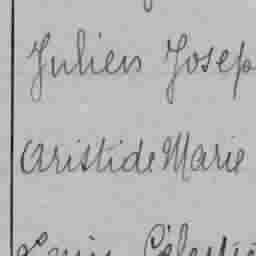 Julien Josep
Aristide Marie
Louis Célesti